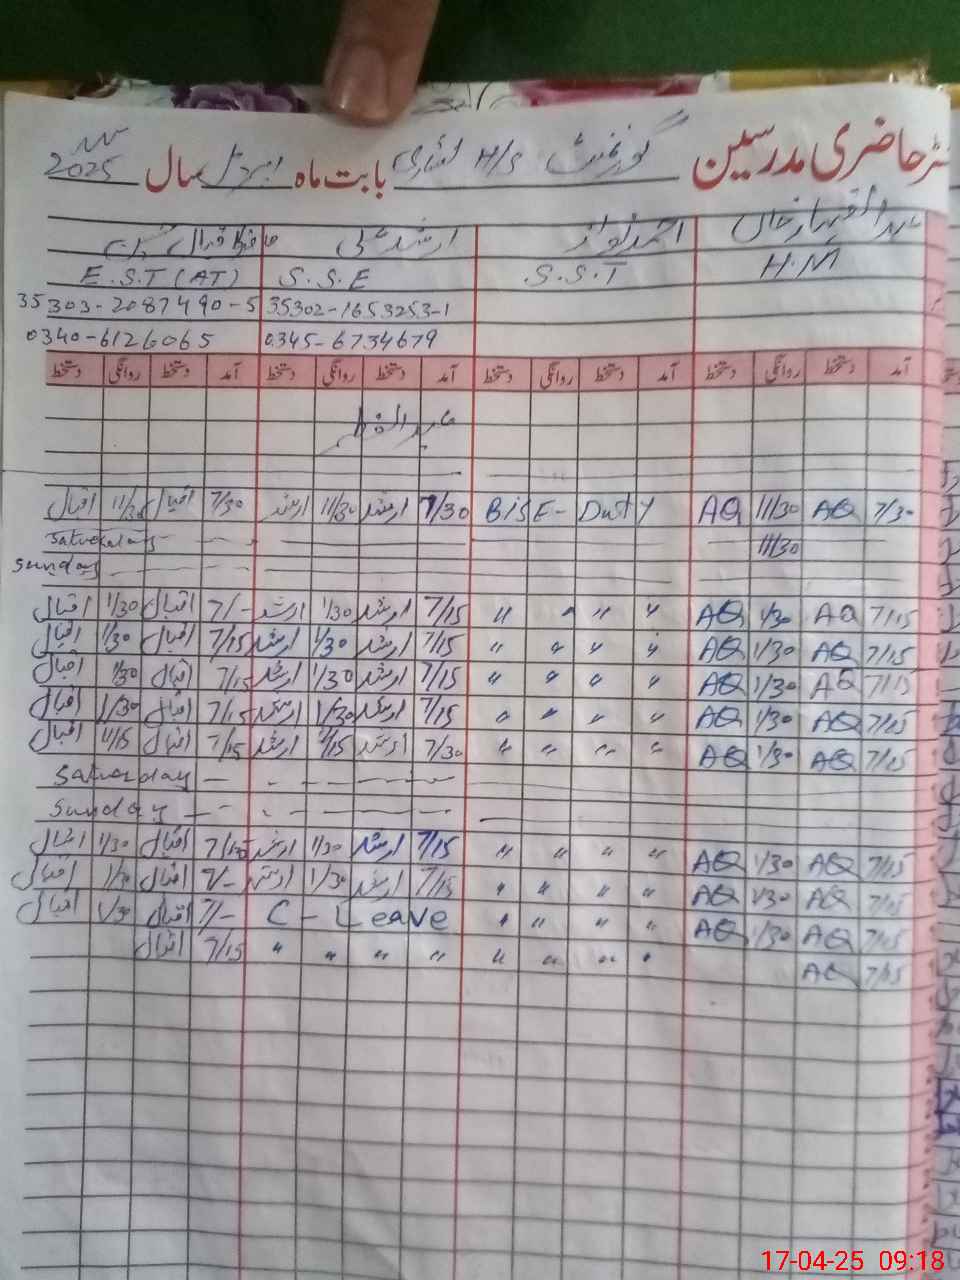 رجسٹر حاضری مدرسین گورنمنٹ H/S بابت ماہ اپریل سال 2025
ارشد علی احمد نواز
H.M S.S.T S.S.E E.S.T (AT)
35302-1653253-1 35303-2087490-5
0345-6734679 0340-6126065
آمد دستخط روانگی دستخط آمد دستخط روانگی دستخط آمد دستخط روانگی دستخط آمد دستخط روانگی دستخط
عید الفطر
7/30 AQ 11/30 AQ BISE - Duty 7/30 ارشد 11/30 ارشد 7/30 اقبال 11/30 اقبال
11/30 Saturday
Sunday
7/15 AQ 1/30 AQ " " " 7/15 ارشد 1/30 ارشد 7/- اقبال 1/30 اقبال
7/15 AQ 1/30 AQ " " " " 7/15 ارشد 1/30 ارشد 7/15 اقبال 1/30 اقبال
7/15 AQ 1/30 AQ " " " " 7/15 ارشد 1/30 ارشد 7/15 اقبال 1/30 اقبال
7/15 AQ 1/30 AQ " " " " 7/15 ارشد 1/30 ارشد 7/15 اقبال 1/30 اقبال
7/15 AQ 1/30 AQ " " " " 7/30 ارشد ارشد 7/15 اقبال اقبال
Saturday
Sunday
7/15 AQ 1/30 AQ " " " " 7/15 ارشد 1/30 ارشد اقبال 1/30 اقبال
7/15 AQ 1/30 AQ " " " " 7/15 ارشد 1/30 ارشد 7/- اقبال 1/30 اقبال
7/15 AQ 1/30 AQ " " " " C - Leave 7/- اقبال 1/30 اقبال
7/15 AQ " " " " " " " " 7/15 اقبال
17-04-25 09:18